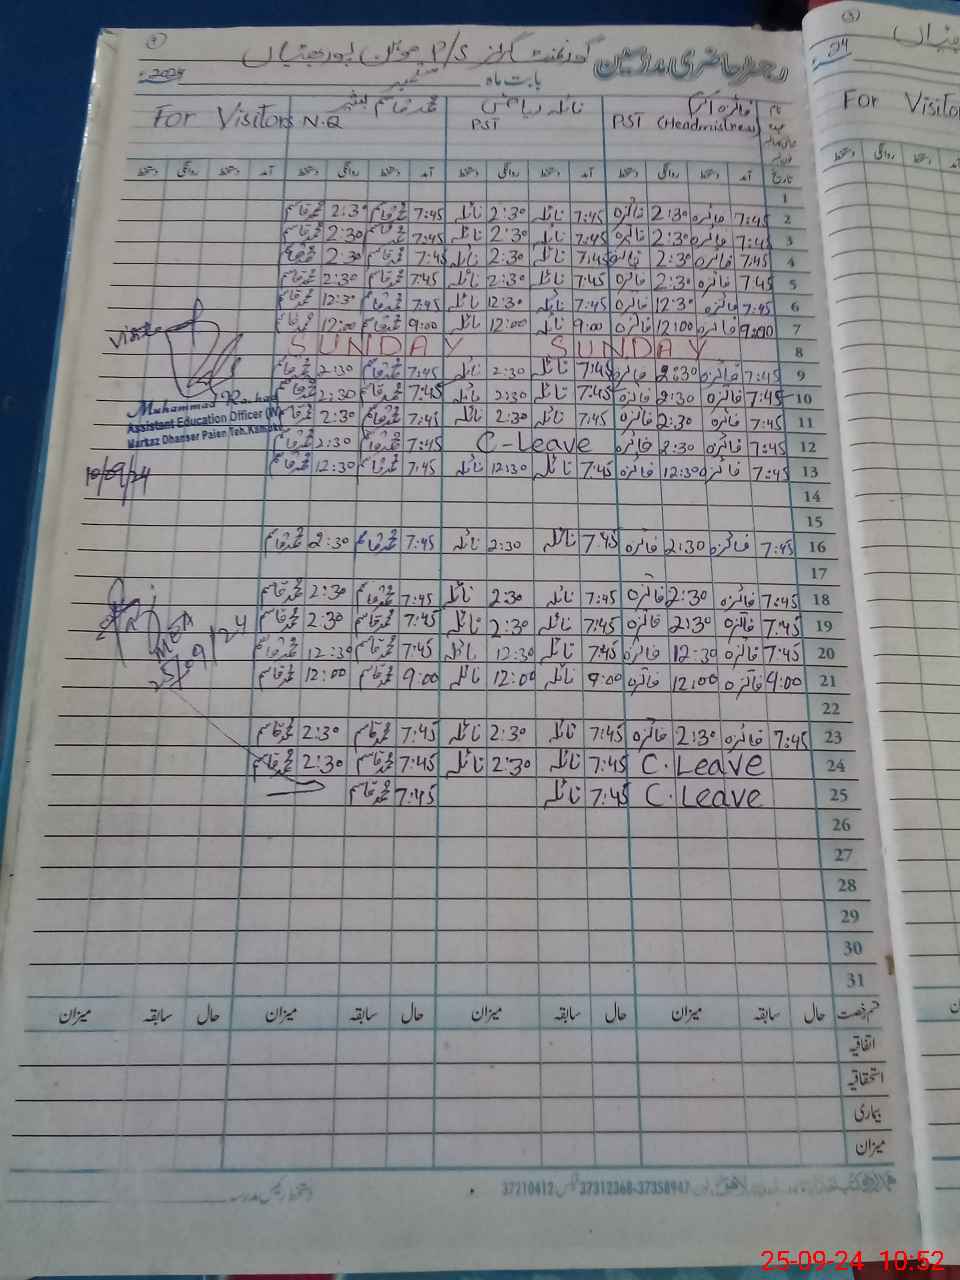 رجسٹر حاضری مدرسین گورنمنٹ گرلز P/S
بابت ماہ ستمبر 2024
نام فائزہ نائلہ محمد قاسم For Visitors
PST (Headmistress) PST N.Q
تاریخ آمد دستخط روانگی دستخط آمد دستخط روانگی دستخط آمد دستخط روانگی دستخط آمد دستخط روانگی دستخط
1
2 7:45 فائزہ 2:30 فائزہ 7:45 نائلہ 2:30 نائلہ 7:45 محمد قاسم 2:30 محمد قاسم
3 7:45 فائزہ 2:30 فائزہ 7:45 نائلہ 2:30 نائلہ 7:45 محمد قاسم 2:30 محمد قاسم
4 7:45 فائزہ 2:30 فائزہ 7:45 نائلہ 2:30 نائلہ 7:45 محمد قاسم 2:30 محمد قاسم
5 7:45 فائزہ 2:30 فائزہ 7:45 نائلہ 2:30 نائلہ 7:45 محمد قاسم 2:30 محمد قاسم
6 7:45 فائزہ 12:30 فائزہ 7:45 نائلہ 12:30 نائلہ 7:45 محمد قاسم 12:30 محمد قاسم
7 9:00 فائزہ 12:00 فائزہ 9:00 نائلہ 12:00 نائلہ 9:00 محمد قاسم 12:00 محمد قاسم
8 SUNDAY SUNDAY
9 7:45 فائزہ 2:30 فائزہ 7:45 نائلہ 2:30 نائلہ 7:45 محمد قاسم 2:30 محمد قاسم
10 7:45 فائزہ 2:30 فائزہ 7:45 نائلہ 2:30 نائلہ 7:45 محمد قاسم 2:30 محمد قاسم
11 7:45 فائزہ 2:30 فائزہ 7:45 نائلہ 2:30 نائلہ 7:45 محمد قاسم 2:30 محمد قاسم
12 7:45 فائزہ 2:30 فائزہ C-Leave 7:45 محمد قاسم 2:30 محمد قاسم
13 7:45 فائزہ 12:30 فائزہ 7:45 نائلہ 12:30 نائلہ 7:45 محمد قاسم 12:30 محمد قاسم
14
15
16 7:45 فائزہ 2:30 فائزہ 7:45 نائلہ 2:30 نائلہ 7:45 محمد قاسم 2:30 محمد قاسم
17
18 7:45 فائزہ 2:30 فائزہ 7:45 نائلہ 2:30 نائلہ 7:45 محمد قاسم 2:30 محمد قاسم
19 7:45 فائزہ 2:30 فائزہ 7:45 نائلہ 2:30 نائلہ 7:45 محمد قاسم 2:30 محمد قاسم
20 7:45 فائزہ 12:30 فائزہ 7:45 نائلہ 12:30 نائلہ 7:45 محمد قاسم 12:30 محمد قاسم
21 9:00 فائزہ 12:00 فائزہ 9:00 نائلہ 12:00 نائلہ 9:00 محمد قاسم 12:00 محمد قاسم
22
23 7:45 فائزہ 2:30 فائزہ 7:45 نائلہ 2:30 نائلہ 7:45 محمد قاسم 2:30 محمد قاسم
24 C.Leave 7:45 نائلہ 2:30 نائلہ 7:45 محمد قاسم 2:30 محمد قاسم
25 C.Leave 7:45 نائلہ 7:45 محمد قاسم
26
27
28
29
30
31
قسم رخصت حال سابقہ میزان حال سابقہ میزان حال سابقہ میزان حال سابقہ میزان
اتفاقیہ
استحقاقیہ
بیماری
میزان
37210412 37312368-37358947
Visit
Muhammad
Assistant Education Officer
Markaz Dhanser Paien Teh. Kamoke
10/09/24
MEA
25/09/24
24
For Visitors
25-09-24 10:52